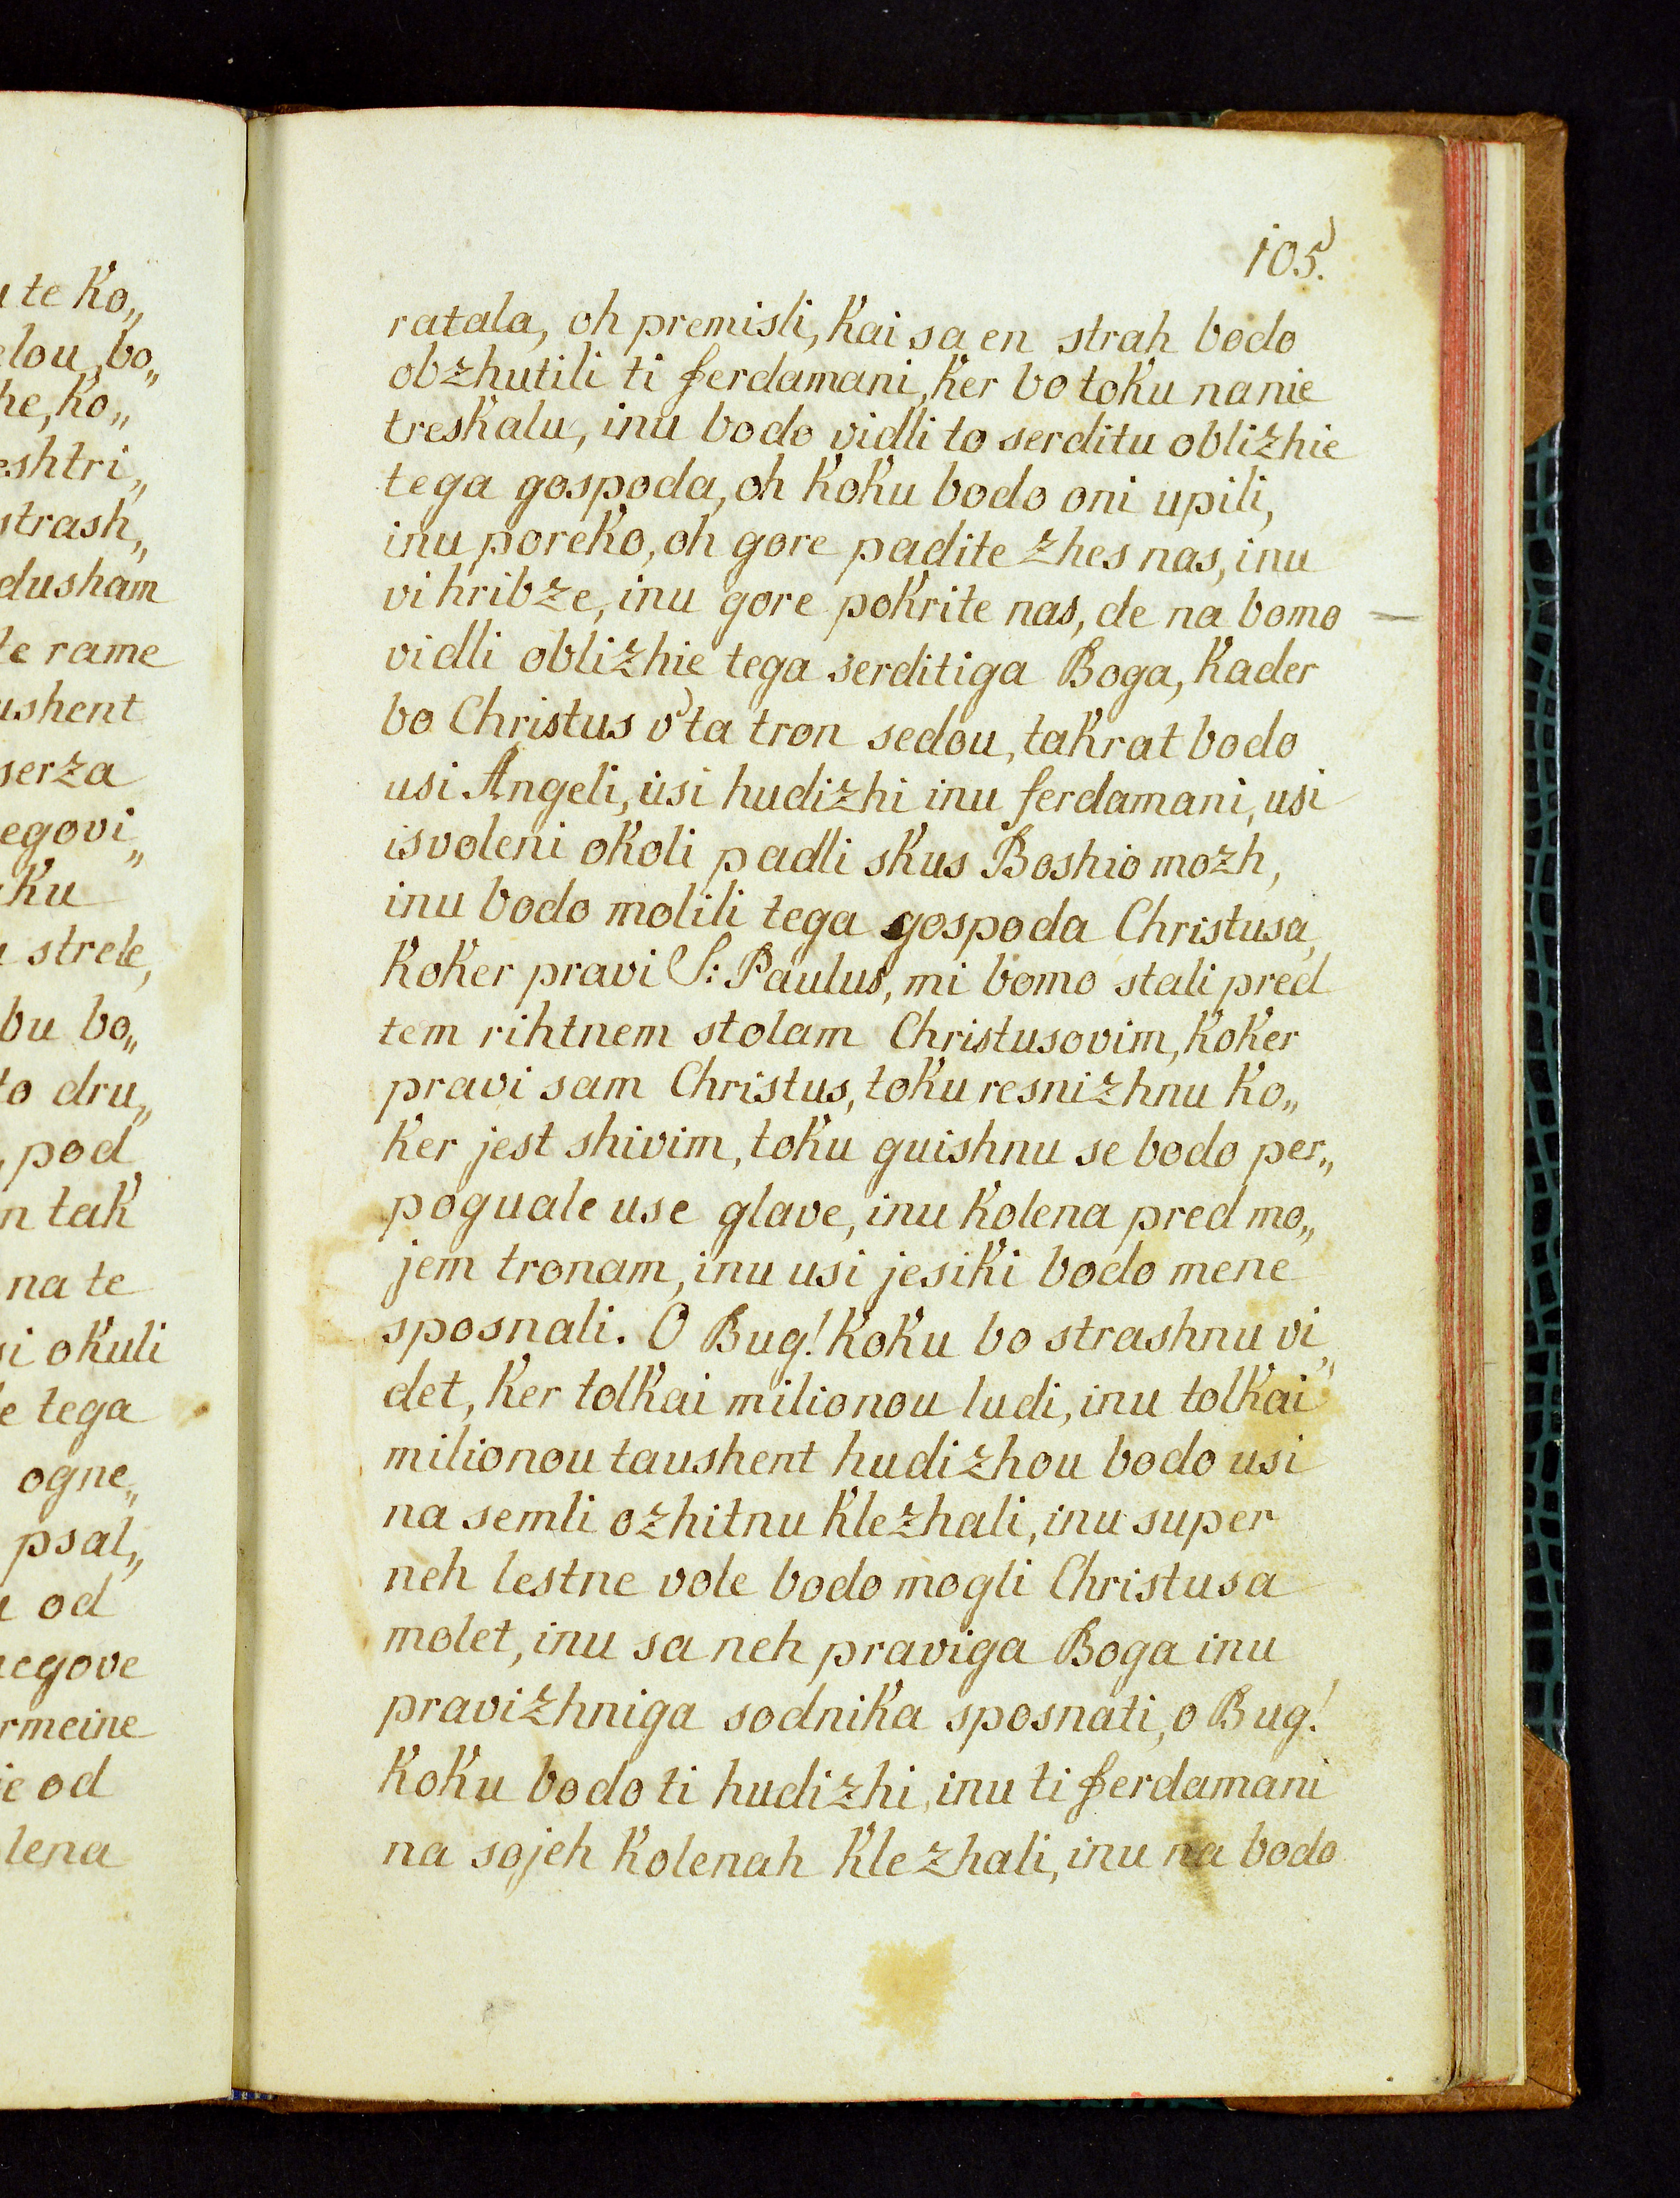 u te ko„
elou, bo„
he, ko„
eshtri„
strash„
dusham
te rame
ushent
serza
egovi„
ku
strele,
bu bo„
to dru„
, pod
n tak
na te
si okuli
e tega
ogne„
psal„
od
negove
rmeine
ie od
lena
105.
ratala, oh premisli, kai sa en strah bodo
obzhutili ti ferdamani, ker bo toku na nie
treskalu, inu bodo vidli to serditu oblizhie
tega gospoda, oh koku bodo oni upili,
inu poreko, oh gore padite zhes nas, inu
vi hribze, inu gore pokrite nas, de na bomo
vidli oblizhie tega serditiga Boga, kader
bo Christus v'ta tron sedou, takrat bodo
usi Angeli, usi hudizhi inu ferdamani, usi
isvoleni okoli padli skus Boshio mozh,
inu bodo molili tega gospoda Christusa,
koker pravi S: Paulus, mi bomo stali pred
tem rihtnem stolam Christusovim, koker
pravi sam Christus, toku resnizhnu ko„
ker jest shivim, toku guishnu se bodo per„
poguale use glave, inu kolena pred mo„
jem tronam, inu usi jesiki bodo mene
sposnali. O Bug! koku bo strashnu vi„
det, ker tolkai milionou ludi, inu tolkai
milionou taushent hudizhou bodo usi
na semli ozhitnu klezhali, inu super
neh lestne vole bodo mogli Christusa
molet, inu sa neh praviga Boga inu
pravizhniga sodnika sposnati, o Bug!
koku bodo ti hudizhi, inu ti ferdamani
na sojeh kolenah klezhali, inu na bodo